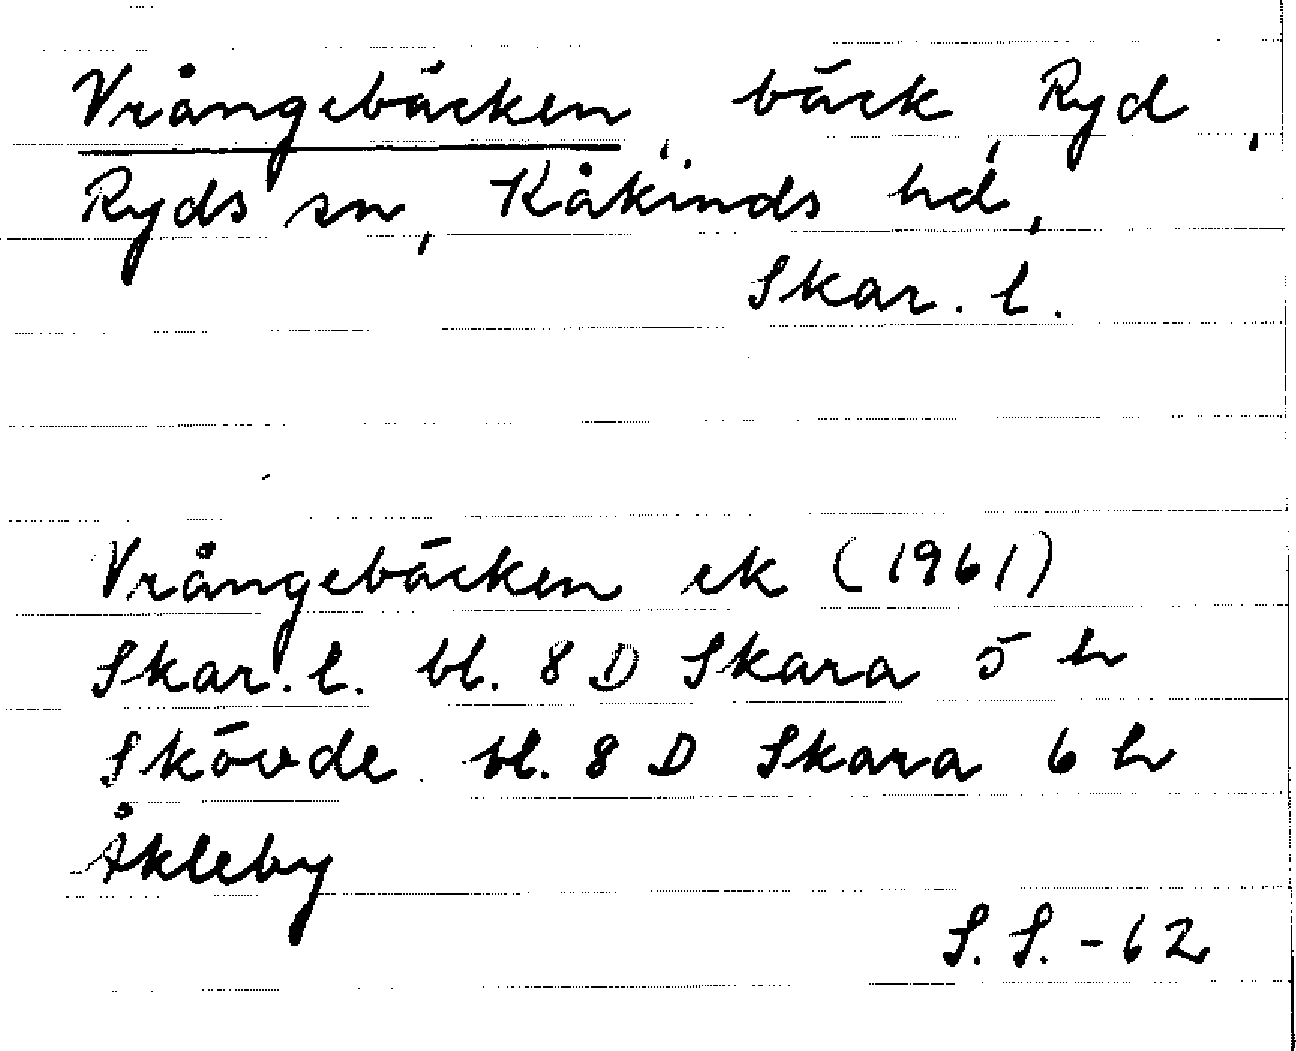 Vrångebäcken, bäck, Ryd,
Ryds sn, Kåkinds hd,
Skar. l.
Vrångebäcken ek (1961)
Skar. l. bl. 8 D Skara 5 h
Skövde bl. 8 D Skara 6 h
Åkleby
S. S. -62